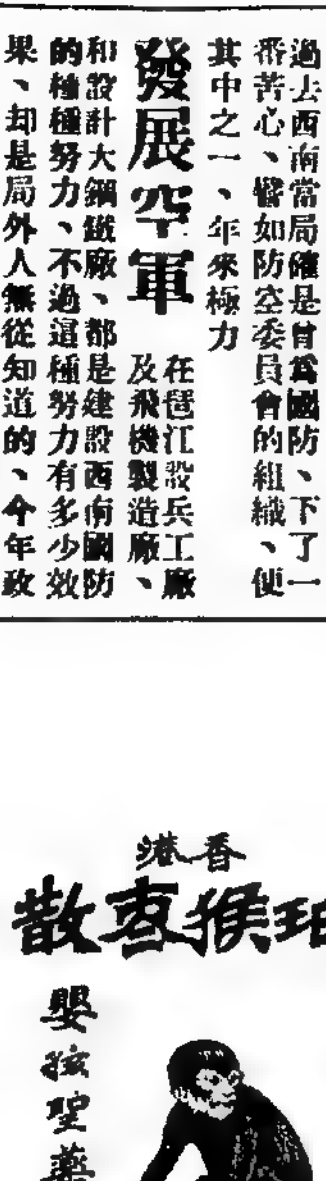 過去西南當局確是曾爲國防、下了一
番苦心、譬如防空委員會的組織、便
其中之一、年來極力
發展空軍
在琶江設兵工廠
及飛機製造廠、
和設計大鋼鐵廠、都是建設西南國防
的種種努力、不過這種努力有多少效
果、却是局外人無從知道的、今年政
香港
珀猴枣散
嬰孩聖藥